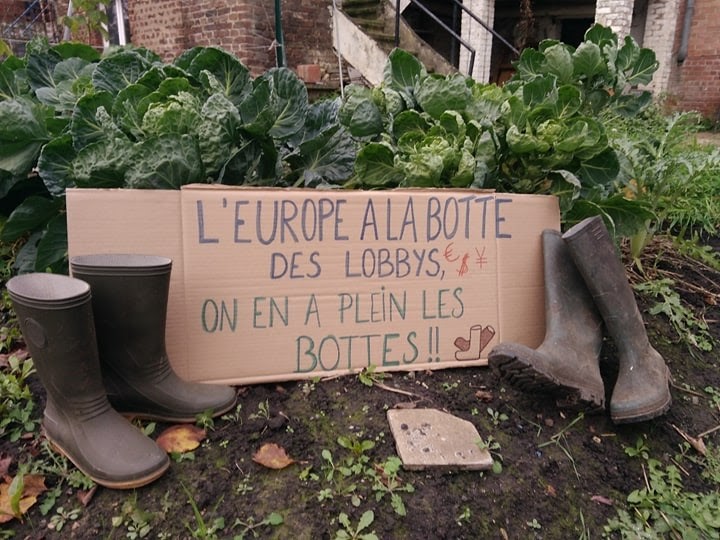 L'EUROPE A LA BOTTE
DES LOBBYS, € $ ¥
ON EN A PLEIN LES
BOTTES !!